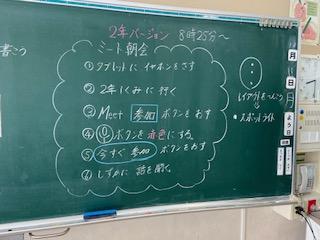 書こう
2年バージョン 8時25分〜
ミート朝会
①タブレットにイヤホンをさす
②2年にくみに行く
③Meet 参加 ボタンをおす
④ボタンを赤色にする。
⑤今すぐ参加 ボタンをおす
⑥しずかに話を聞く。
レイアウトをへんこう
・スポットライト
月
日
月
よう日